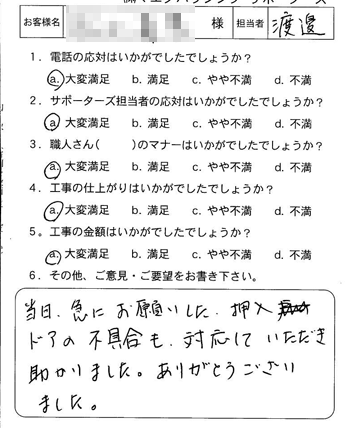 お客様名 様 担当者 渡邉
1．電話の応対はいかがでしたでしょうか？
a. 大変満足 b. 満足 c. やや不満 d. 不満
2．サポーターズ担当者の応対はいかがでしたでしょうか？
a. 大変満足 b. 満足 c. やや不満 d. 不満
3．職人さん( )のマナーはいかがでしたでしょうか？
a. 大変満足 b. 満足 c. やや不満 d. 不満
4．工事の仕上がりはいかがでしたでしょうか？
a. 大変満足 b. 満足 c. やや不満 d. 不満
5．工事の金額はいかがでしたでしょうか？
a. 大変満足 b. 満足 c. やや不満 d. 不満
6．その他、ご意見・ご要望をお書き下さい。
当日、急にお願いした、押入
ドアの不具合も、対応していただき
助かりました。ありがとうござい
ました。